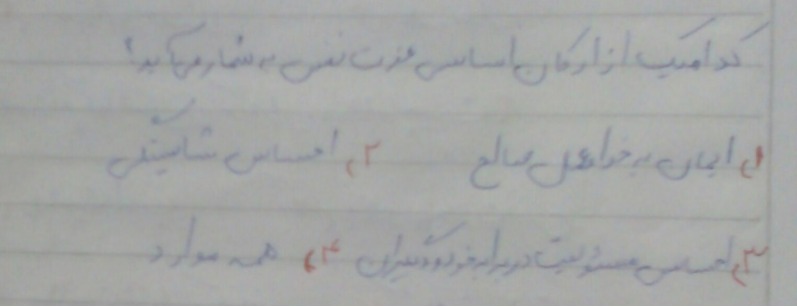 کدامیک از ارکان اساسی عزت نفس به شمار می آید؟
۱) ایمان به خدا و عمل صالح ۲) احساس شایستگی
۳) احساس مسئولیت در برابر خود و دیگران ۴) همه موارد